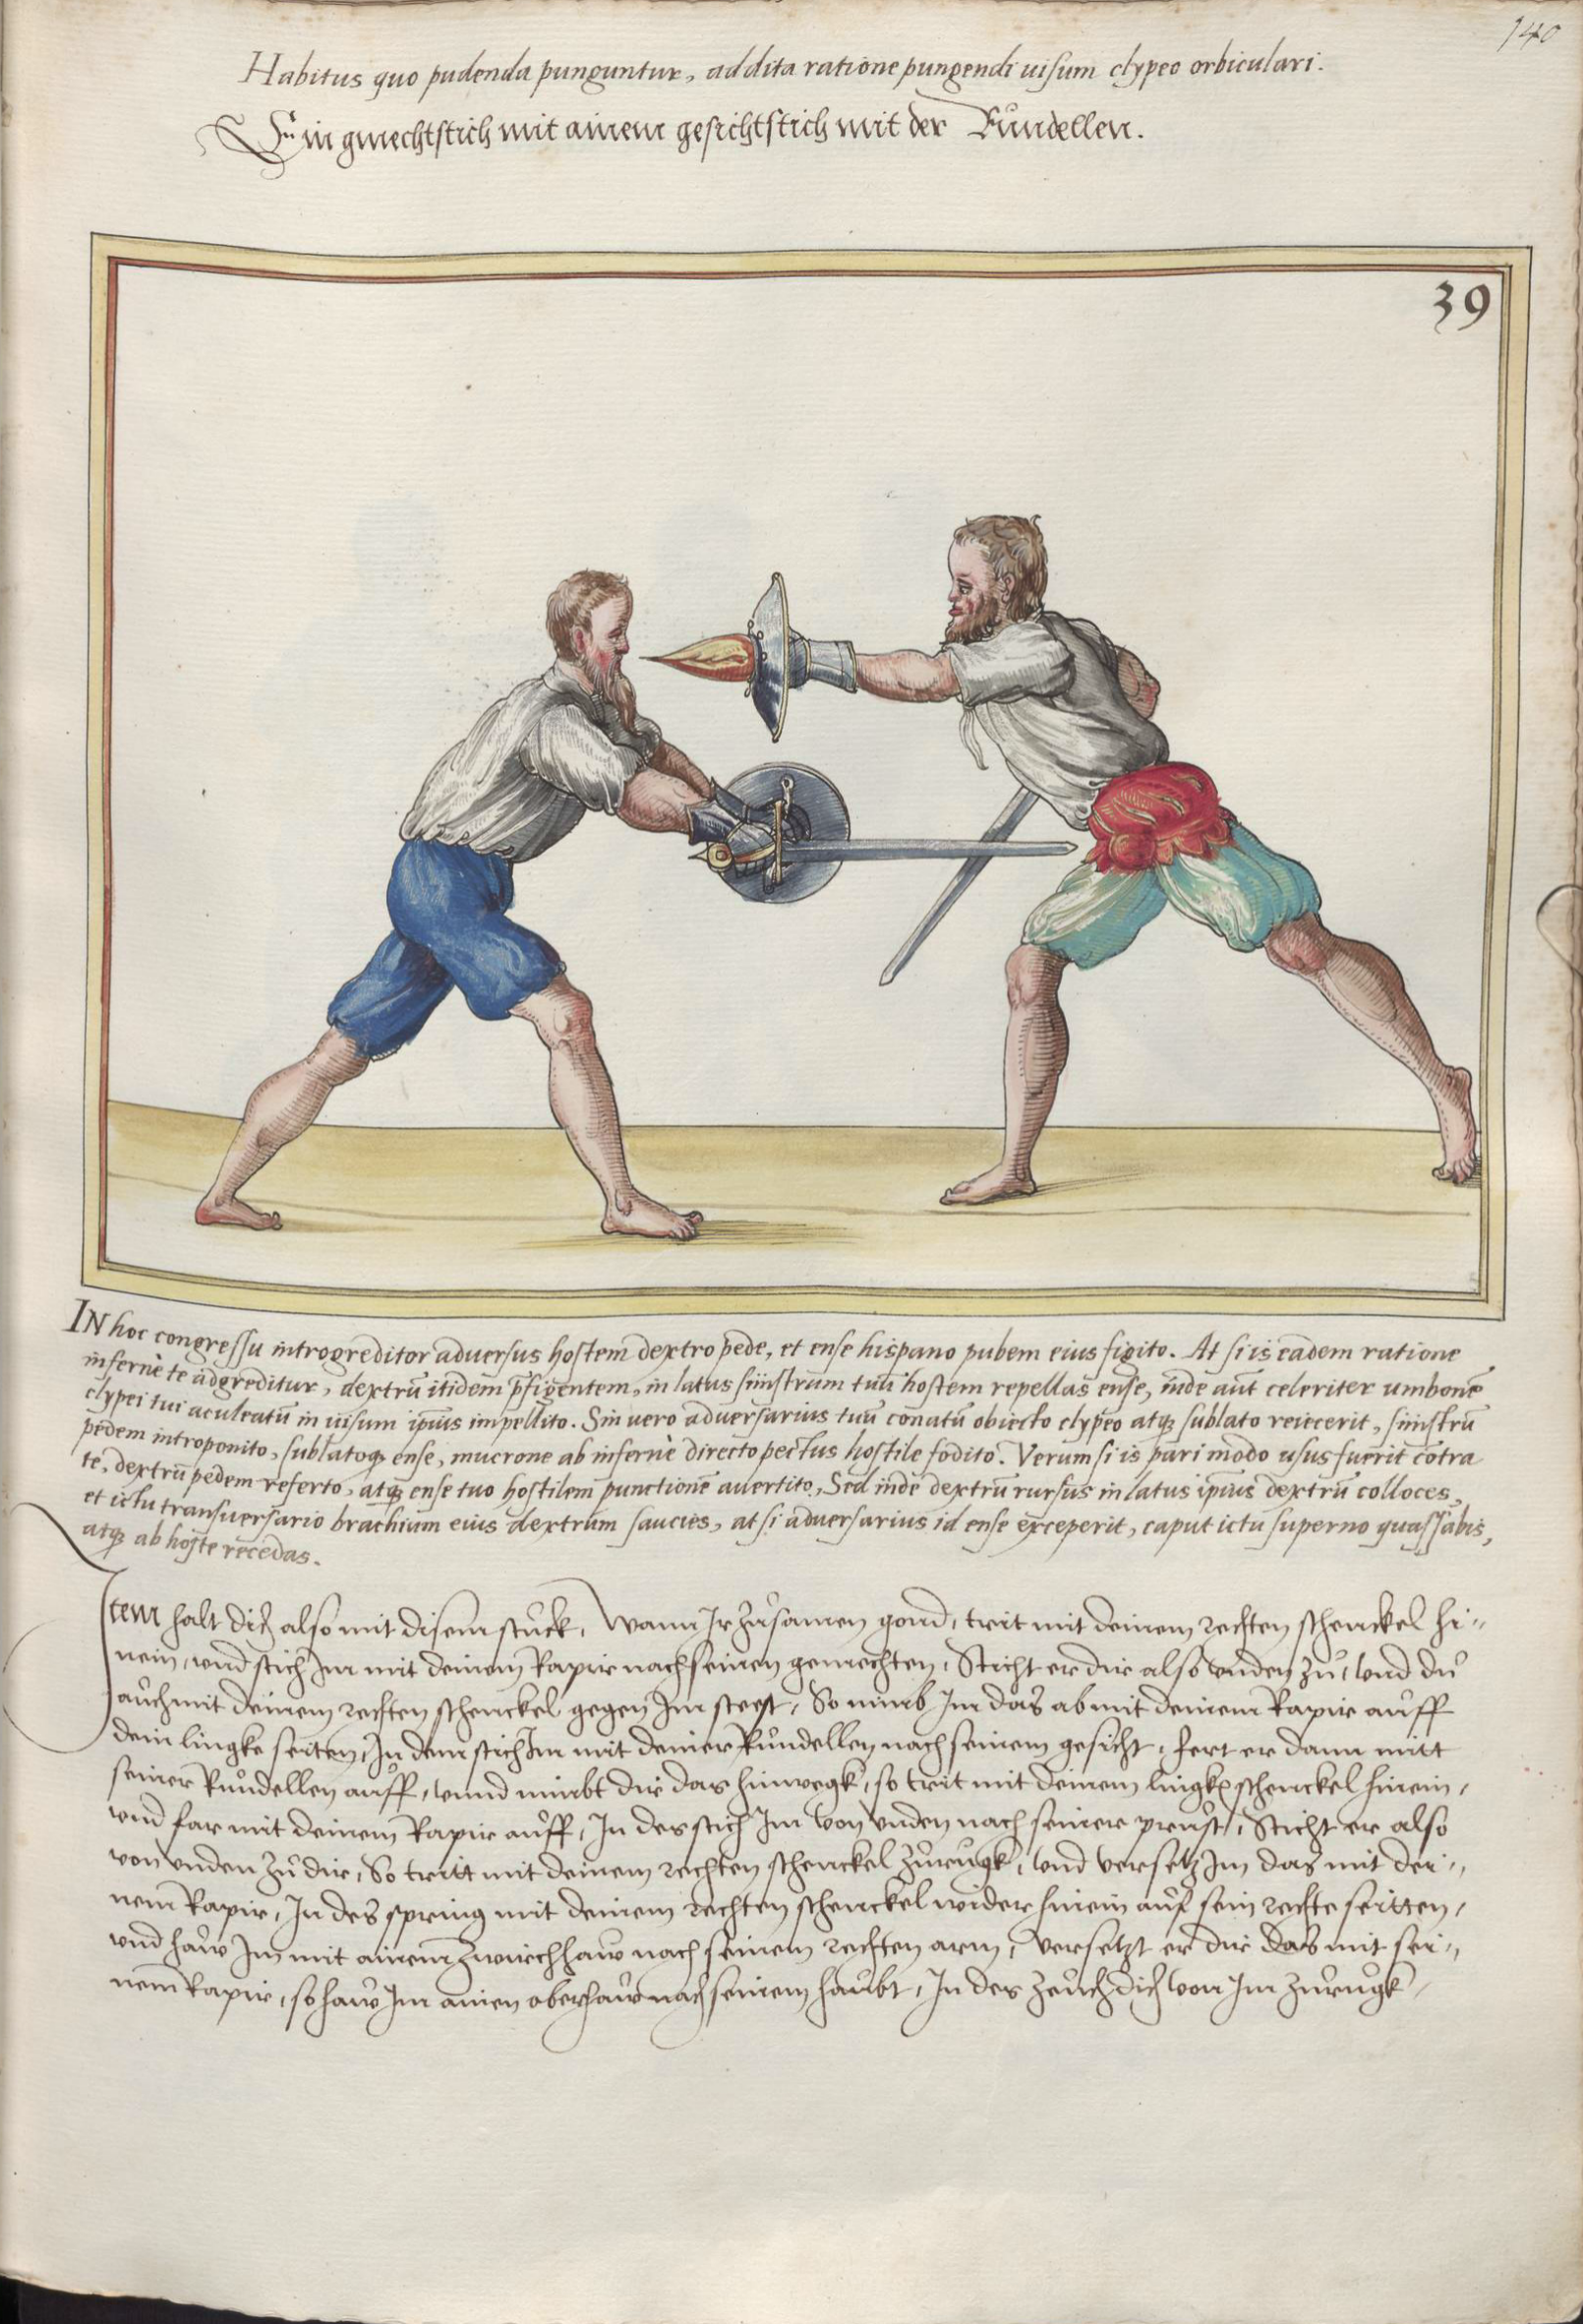 140
Habitus quo pudenda punguntur, addita ratione pungendi uisum clypeo orbiculari.
Ein gmechtstich mit ainem gesichtstich mit der Rundellen.
39
IN hoc congressu introgreditor aduersus hostem dextro pede, et ense hispano pubem eius figito. At si is eadem ratione
infernè te adgreditur, dextrū itidem p̄figentem, in latus sinistrum tuū hostem repellas ense, inde aūt celeriter umbonē
clypei tui aculeatū in uisum ipsius impellito. Sin uero aduersarius tuū conatū obiecto clypeo atq; sublato reiecerit, sinistrū
pedem introponito, sublatoq; ense, mucrone ab infernè directo pectus hostile fodito. Verum si is pari modo usus fuerit cōtra
te, dextrū pedem referto, atq; ense tuo hostilem punctionē auertito, Sed inde dextrū rursus in latus ipsius dextrū colloces,
et ictu transuersario brachium eius dextrum saucies, at si aduersarius id ense exceperit, caput ictu superno quassabis,
atq; ab hoste recedas.
Item halt dich also mit disem stuck, Wann Ir zusamen gond, trit mit deinem rechten schenckel hi=
nein, vnd stich Im mit deinem Rapir nach seinen gemechten, Sticht er dir also vnden zu, vnd du
auch mit deinem rechten schenckel gegen Im steest, So nimb Im das ab mit deinem Rapir auff
dein lingke seiten, In dem stich Im mit deiner Rundellen nach seinem gesicht, fert er dann mitt
seiner Rundellen auff, vnnd nimbt dir das hinwegk, so trit mit deinem lingkē schenckel hinein,
vnd far mit deinem Rapir auff, In des stich Im von vnden nach seiner prust, Sticht er also
von vnden zu dir, So tritt mit deinem rechten schenckel zurugk, vnd versetz Im das mit dei=
nem Rapir, In des spring mit deinem rechten schenckel wider hinein auf sein rechte seitten,
vnd haw Im mit ainem zwirchhaw nach seinem rechten arm, versetzt er dir das mit sei=
nem Rapir, so haw Im ainen oberhaw nach seinem haubt, In des zeuch dich von Im zurugk